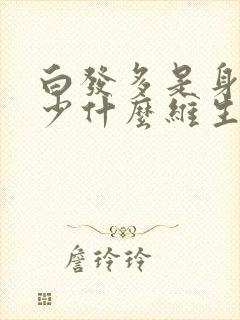 白發多是身
少什麼維生
詹玲玲